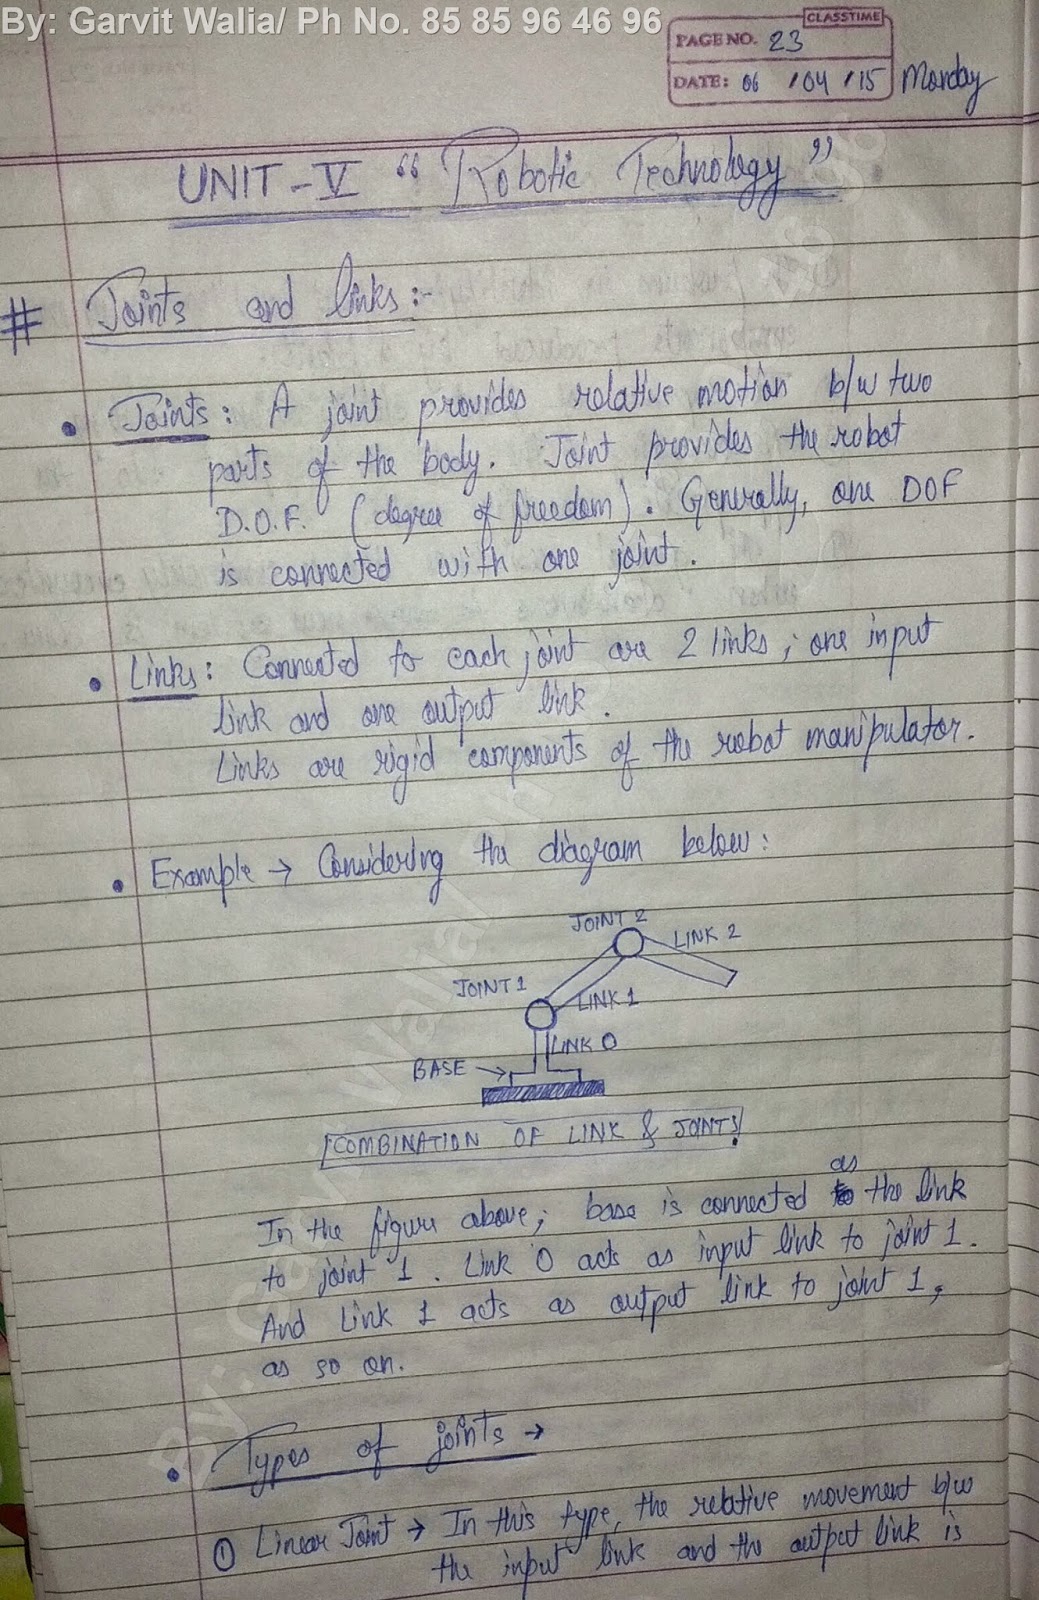 By: Garvit Walia/ Ph No. 85 85 96 46 96
CLASSTIME
PAGE NO. 23
DATE: 06 / 04 / 15 Monday
UNIT-V “Robotic Technology”
# Joints and links:-
• Joints: A joint provides relative motion b/w two
parts of the body. Joint provides the robot
D.O.F. (degree of freedom). Generally, one DOF
is connected with one joint.
• Links: Connected to each joint are 2 links; one input
link and one output link.
Links are rigid components of the robot manipulator.
• Example → Considering the diagram below:
JOINT 2
LINK 2
JOINT 1
LINK 1
LINK 0
BASE →
COMBINATION OF LINK & JOINTS
In the figure above; base is connected as the link
to joint 1. Link 0 acts as input link to joint 1.
And Link 1 acts as output link to joint 1,
as so on.
• Types of joints →
① Linear Joint → In this type, the relative movement b/w
the input link and the output link is